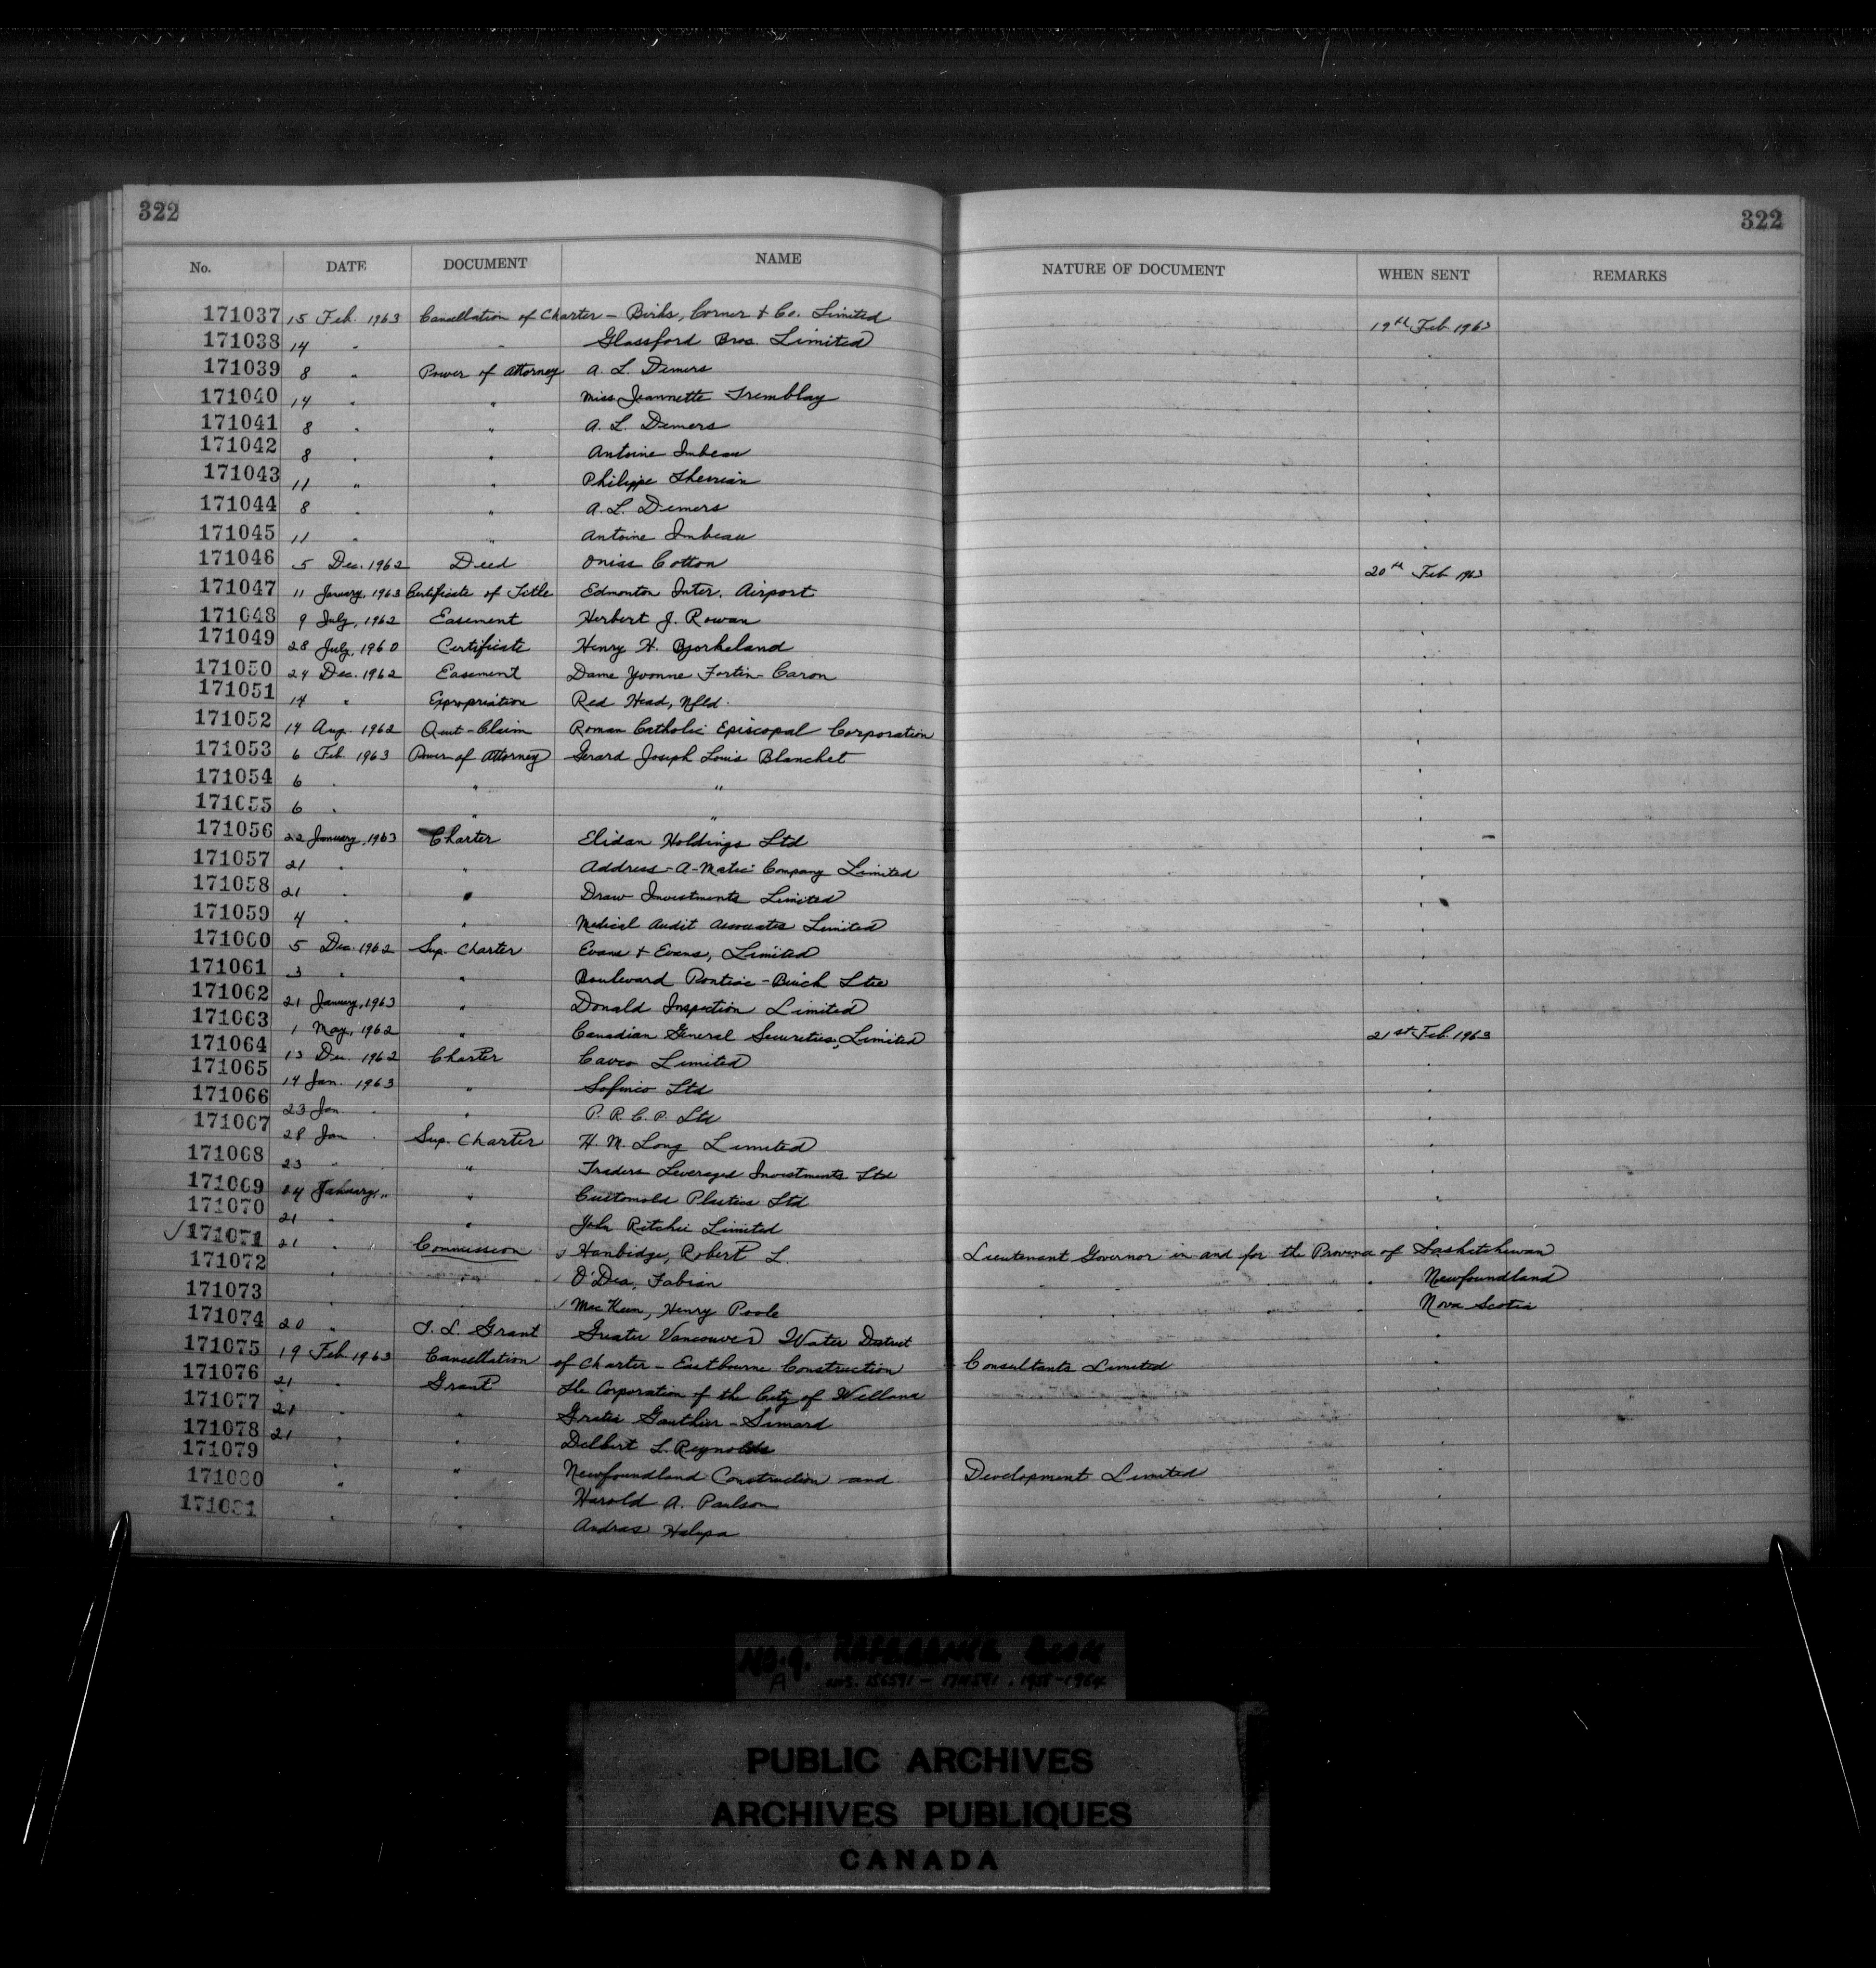 322 322
No. DATE DOCUMENT NAME NATURE OF DOCUMENT WHEN SENT REMARKS
171037 15 Feb. 1963 Cancellation of Charter - Birks, Corner & Co. Limited 19th Feb. 1963
171038 14 " " Glassford Bros. Limited "
171039 8 " Power of Attorney A. L. Demers "
171040 14 " " Miss Jeannette Tremblay "
171041 8 " " A. L. Demers "
171042 8 " " Antoine Imbeau "
171043 11 " " Philippe Therrien "
171044 8 " " A. L. Demers "
171045 11 " " Antoine Imbeau "
171046 5 Dec. 1962 Deed Onias Cotton 20th Feb 1963
171047 11 January, 1963 Certificate of Title Edmonton Inter. Airport "
171048 9 July, 1962 Easement Herbert J. Rowan "
171049 28 July, 1960 Certificate Henry H. Bjorkeland "
171050 24 Dec. 1962 Easement Dame Yvonne Fortin-Caron "
171051 14 " Expropriation Red Head, Nfld. "
171052 14 Aug. 1962 Quit-Claim Roman Catholic Episcopal Corporation "
171053 6 Feb. 1963 Power of Attorney Gerard Joseph Louis Blanchet "
171054 6 " " " "
171055 6 " " " "
171056 22 January, 1963 Charter Elidan Holdings Ltd "
171057 21 " " Address-A-Matic Company Limited "
171058 21 " " Draw Investments Limited "
171059 4 " " Medical Audit Associates Limited "
171060 5 Dec. 1962 Sup. Charter Evans & Evans, Limited "
171061 3 " " Boulevard Pontiac-Buick Ltee "
171062 21 January, 1963 " Donald Inspection Limited "
171063 1 May, 1962 " Canadian General Securities, Limited 21st Feb. 1963
171064 13 Dec. 1962 Charter Cavco Limited "
171065 14 Jan. 1963 " Sofinco Ltd "
171066 23 Jan " " P.R.C.P. Ltd "
171067 28 Jan " Sup. Charter H. M. Long Limited "
171068 23 " " Traders Leveraged Investments Ltd "
171069 24 January, " " Customold Plastics Ltd "
171070 21 " " John Ritchie Limited "
√ 171071 21 " Commission √ Hanbidge, Robert L. Lieutenant Governor in and for the Province of Saskatchewan
171072 " " √ O'Dea, Fabian " " " " Newfoundland
171073 " " √ MacKeen, Henry Poole " " " " Nova Scotia
171074 20 " Greater Vancouver Water District "
171075 19 Feb. 1963 Cancellation of Charter - Eastbourne Construction Consultants Limited "
171076 21 " Grant The Corporation of the City of Welland "
171077 21 " " Gauthier-Simard "
171078 21 " " Delbert L. Reynolds "
171079 " " Newfoundland Construction and Development Limited "
171080 " " Harold A. Paulson "
171081 " " Andras Halupa "
REFERENCE BOOK
NOS. 156591 - 174591. 1958-1964
PUBLIC ARCHIVES
ARCHIVES PUBLIQUES
CANADA